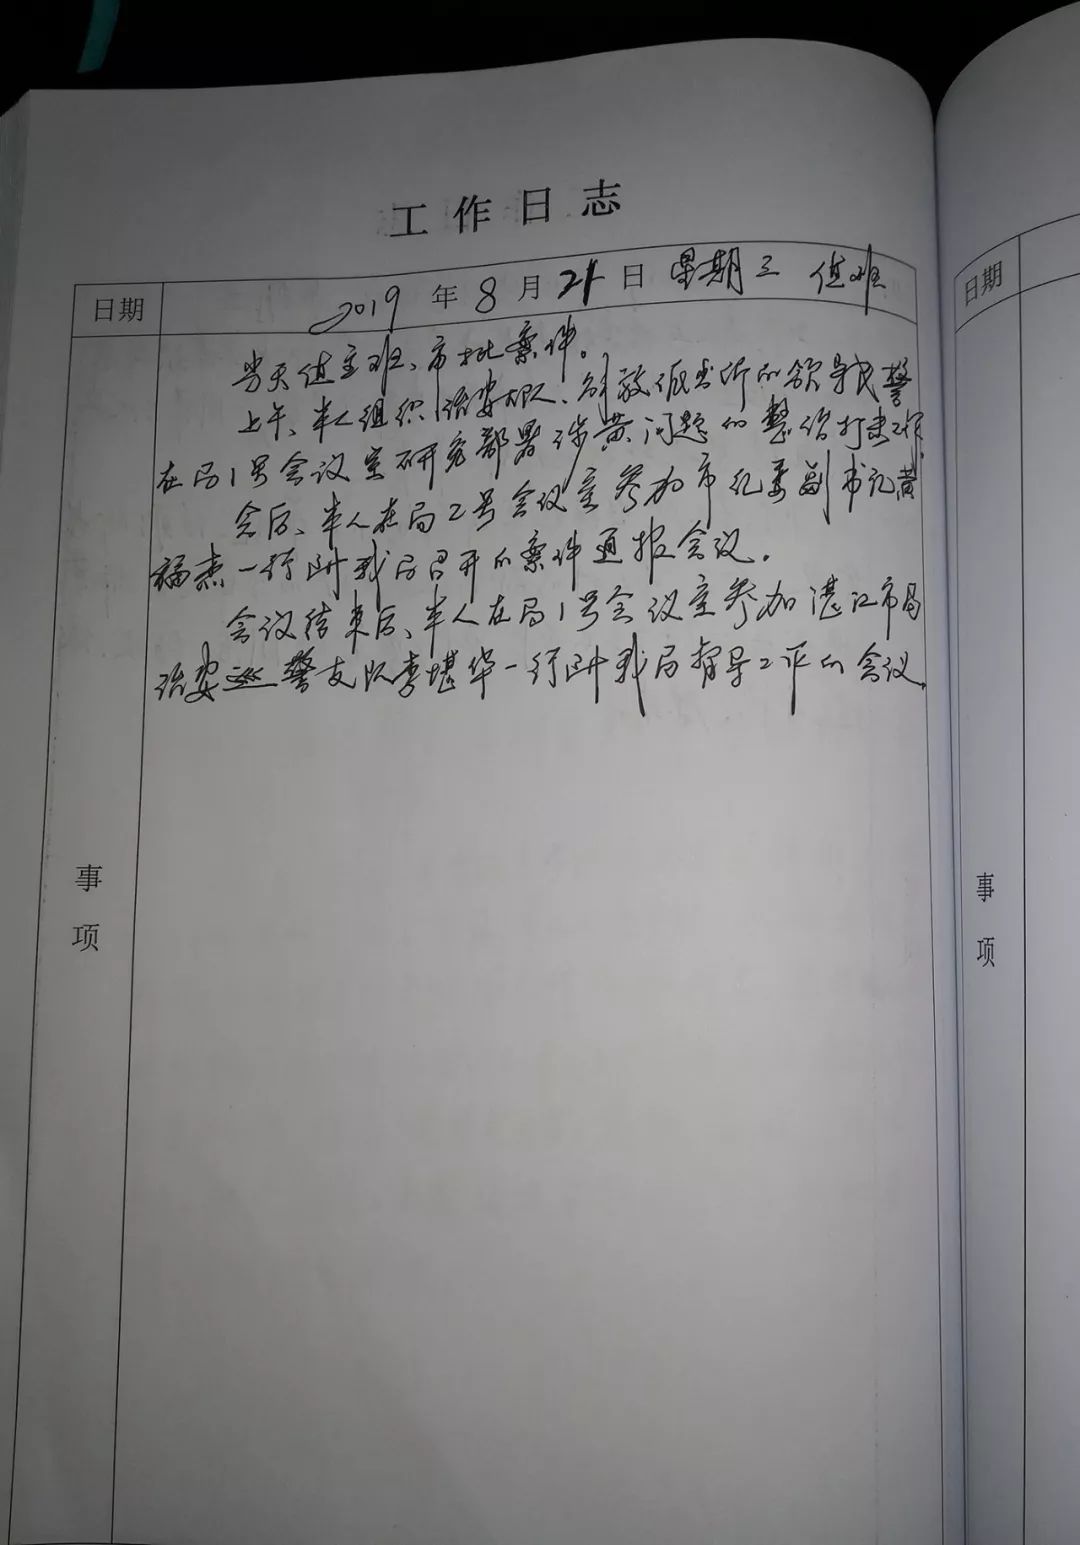 工作日志
日期 2019年8月21日 星期三 值班
当天值主班、审批案件。
上午、本人组织治安大队、解放派出所的领导民警
在局1号会议室研究部署涉黄问题的整治打击工作。
会后、本人在局2号会议室参加市纪委副书记黄
福杰一行到我局召开的案件通报会议。
会议结束后、本人在局1号会议室参加湛江市局
治安巡警支队李堪华一行到我局指导工作的会议。
事项
日期
事项